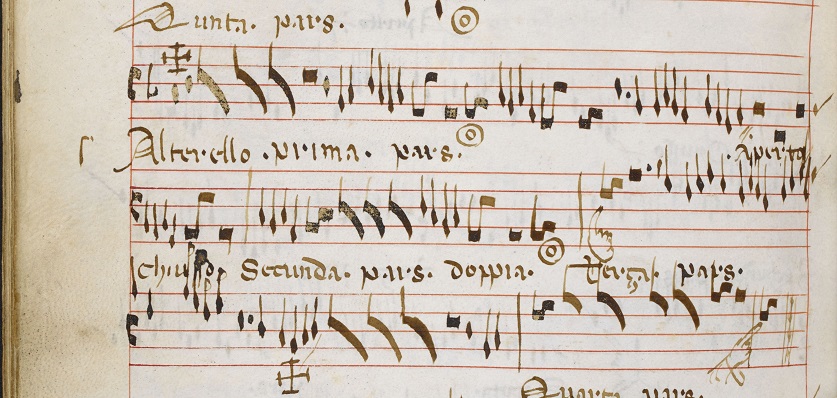 Quinta. pars.
Alterello .prima. pars.
Aperto
Chiuso Secunda. pars. doppia. Terza. pars.
Quarta. pars.